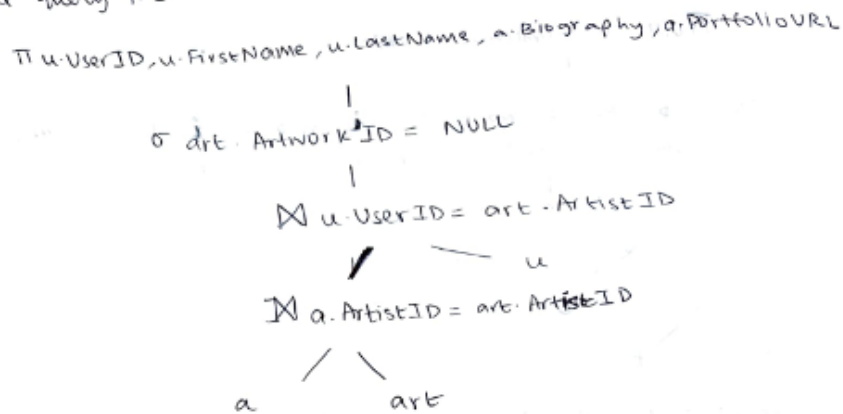 query
π u.UserID, u.FirstName, u.LastName, a.Biography, a.PortfolioURL
σ art. Artwork ID = NULL
⋈ u.UserID = art.ArtistID
u
⟕ a.ArtistID = art.ArtistID
a art